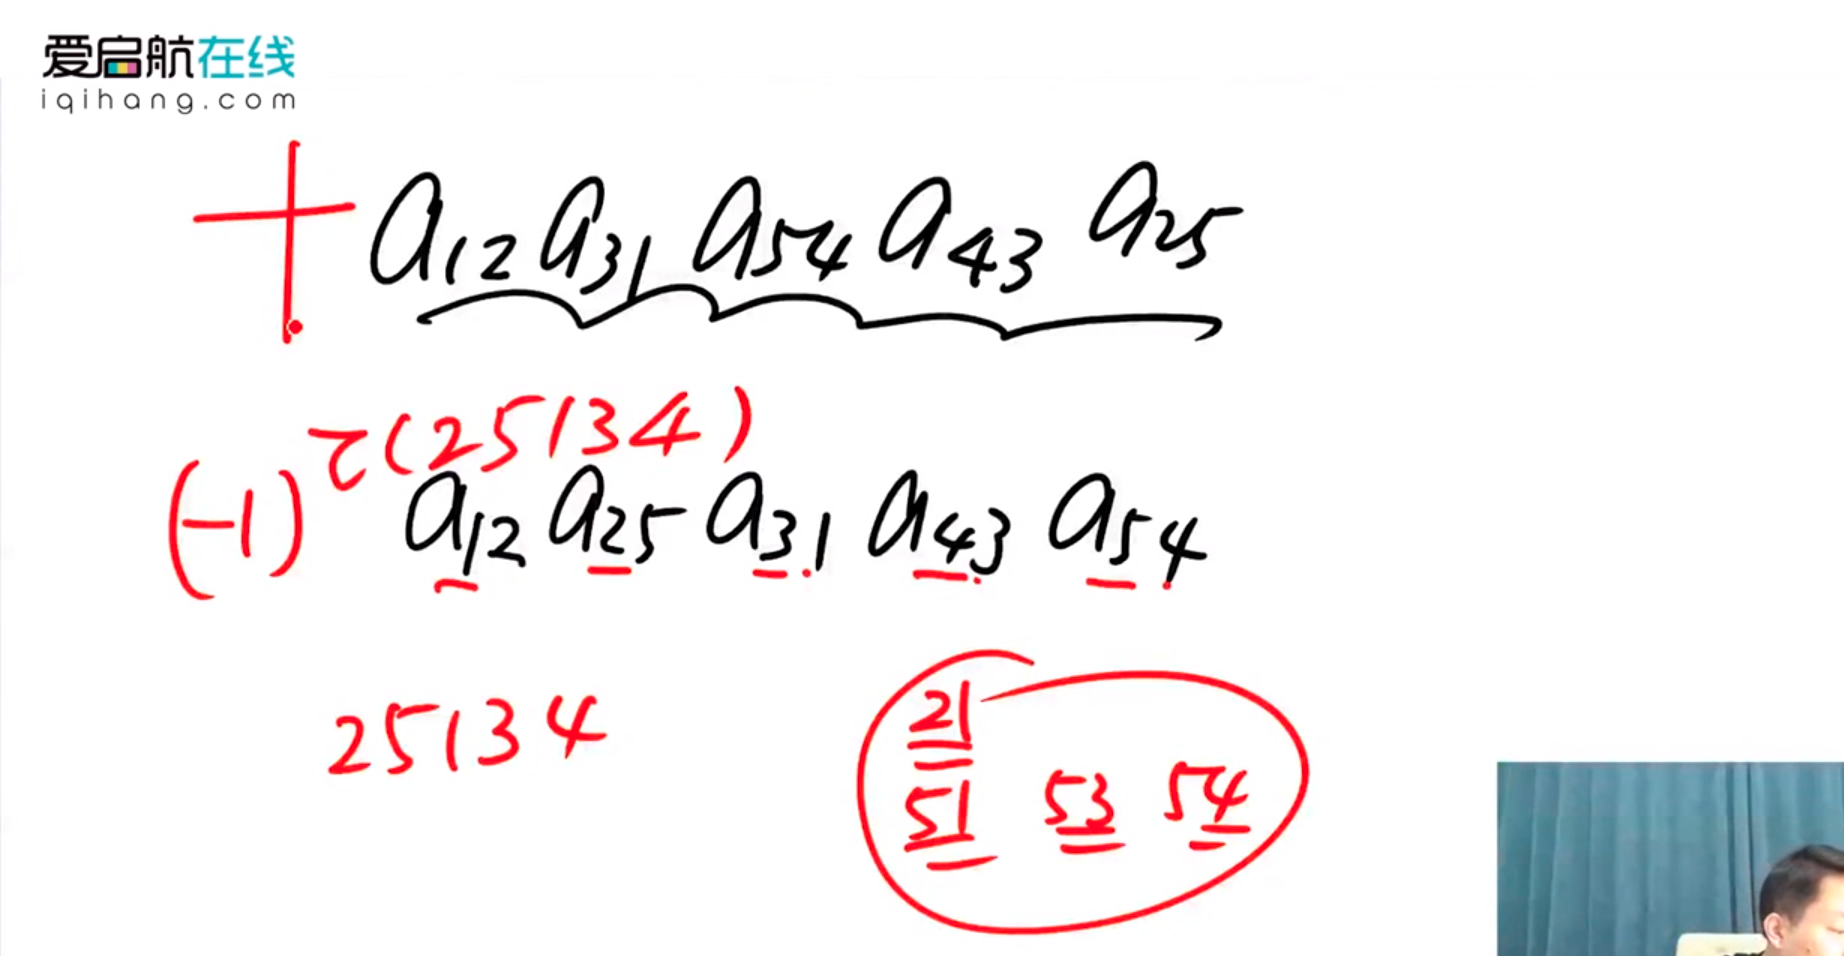 爱启航在线
iqihang.com
+ a₁₂ a₃₁ a₅₄ a₄₃ a₂₅
(-1)^τ(25134) a₁₂ a₂₅ a₃₁ a₄₃ a₅₄
25134
21
51 53 54